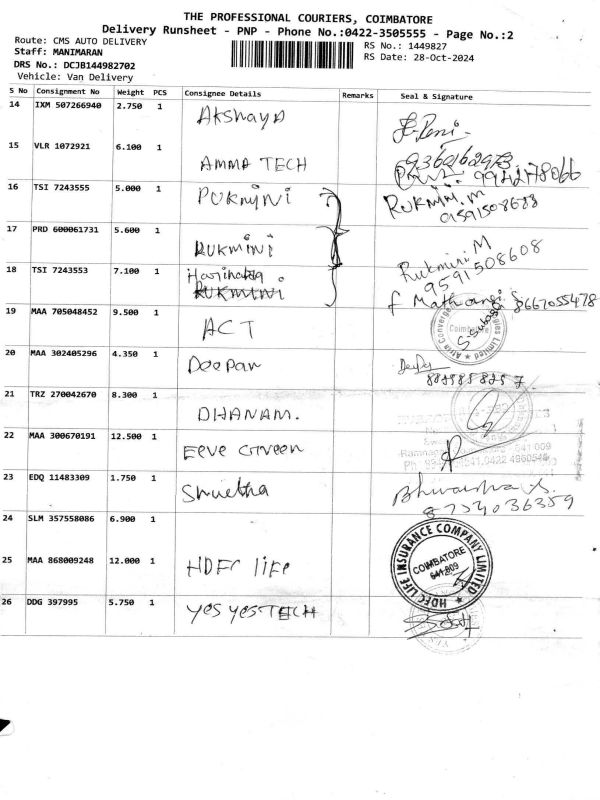 THE PROFESSIONAL COURIERS, COIMBATORE
Delivery Runsheet - PNP - Phone No.:0422-3505555 - Page No.:2
Route: CMS AUTO DELIVERY
Staff: MANIMARAN
DRS No.: DCJB144982702
Vehicle: Van Delivery
RS No.: 1449827
RS Date: 28-Oct-2024
S No Consignment No Weight PCS Consignee Details Remarks Seal & Signature
14 IXM 507266940 2.750 1 Akshaya
15 VLR 1072921 6.100 1 AMMA TECH 9360162973
16 TSI 7243555 5.000 1 RUKMINI RUKMINI.M
17 PRD 600061731 5.600 1 RUKMINI Rukmini M
9591508608
18 TSI 7243553 7.100 1
RUKMINI
19 MAA 705048452 9.500 1 ACT 8667055478
Coimbatore
20 MAA 302405296 4.350 1 Deepan
8825858257
21 TRZ 270042670 8.300 1 DHANAM.
22 MAA 300670191 12.500 1 Eeve Green
641 009
23 EDQ 11483309 1.750 1 Shwetha
8754036359
24 SLM 357558086 6.900 1
25 MAA 868009248 12.000 1 HDFC life
HDFC LIFE INSURANCE COMPANY LIMITED
COIMBATORE
641 009
26 DDG 397995 5.750 1 yes yes TECH